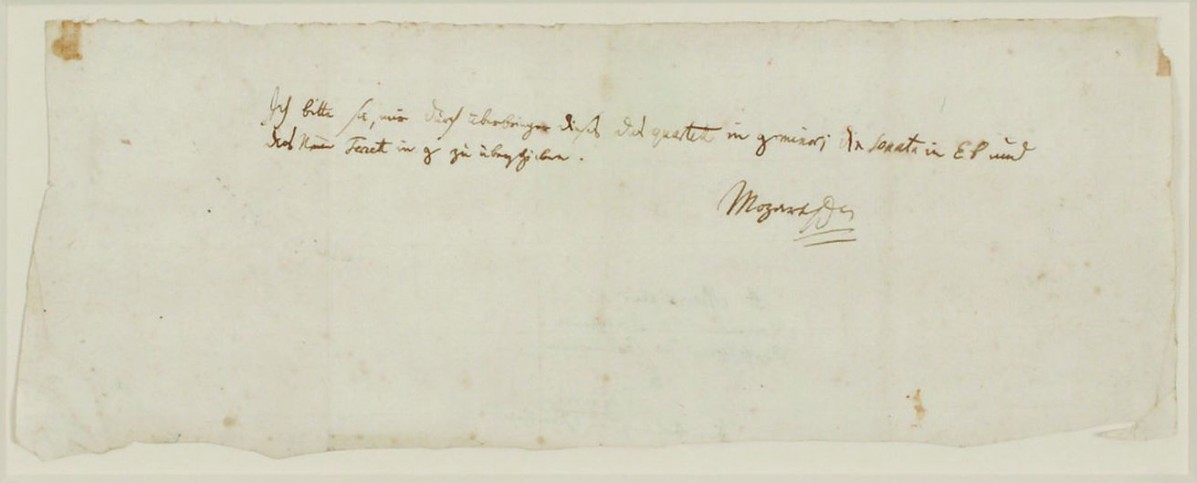 Ich bitte sie, mir durch überbringer dieses das quartett in g minor; die sonata in Eb und
das Neue Terzett in g zu überschicken.
Mozart